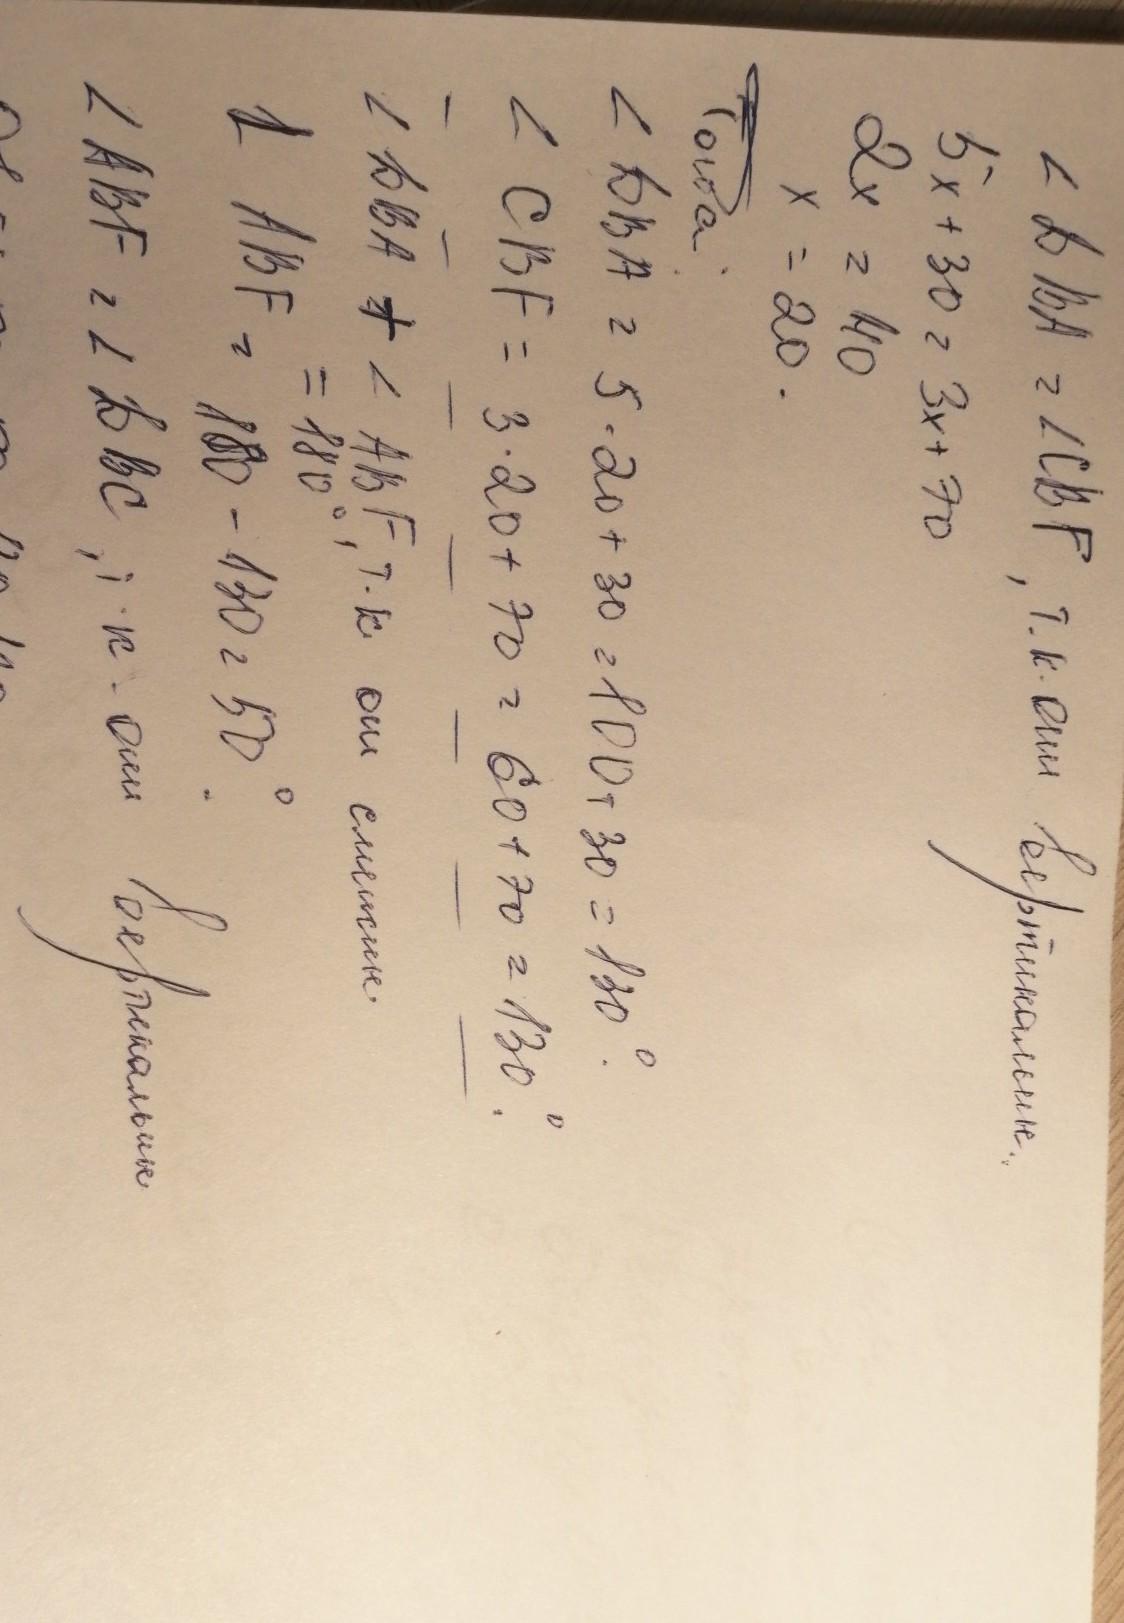 ∠DBA = ∠CBF, т.к. они вертикальные.
5x + 30 = 3x + 70
2x = 40
x = 20.
Тогда
∠DBA = 5·20 + 30 = 100 + 30 = 130°.
∠CBF = 3·20 + 70 = 60 + 70 = 130°.
∠DBA + ∠ABF, т.к они смежные
= 180°,
∠ABF = 180 - 130 = 50°.
∠ABF = ∠DBC, т.к. они вертикальные